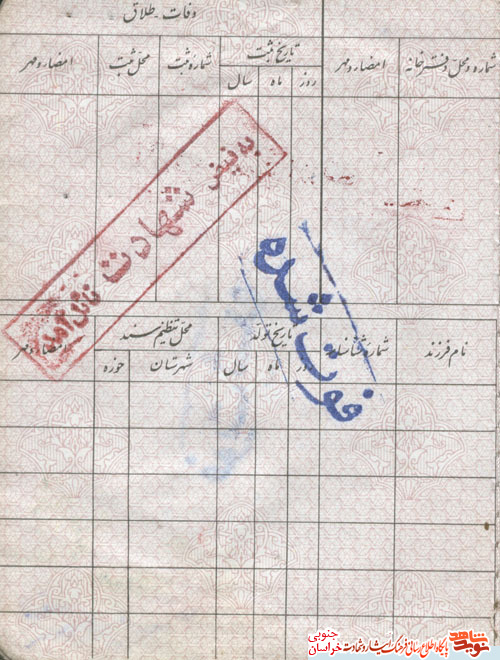 وفات - طلاق
شماره و محل دفترخانه امضاء و مهر تاریخ ثبت شماره ثبت محل ثبت امضاء و مهر
روز ماه سال
به فیض شهادت نائل آمد
فوت شده
نام فرزند شماره شناسنامه تاریخ تولد محل تنظیم سند امضاء و مهر
روز ماه سال شهرستان حوزه
نوید شاهد پایگاه اطلاع رسانی فرهنگ ایثار و شهادت خراسان جنوبی